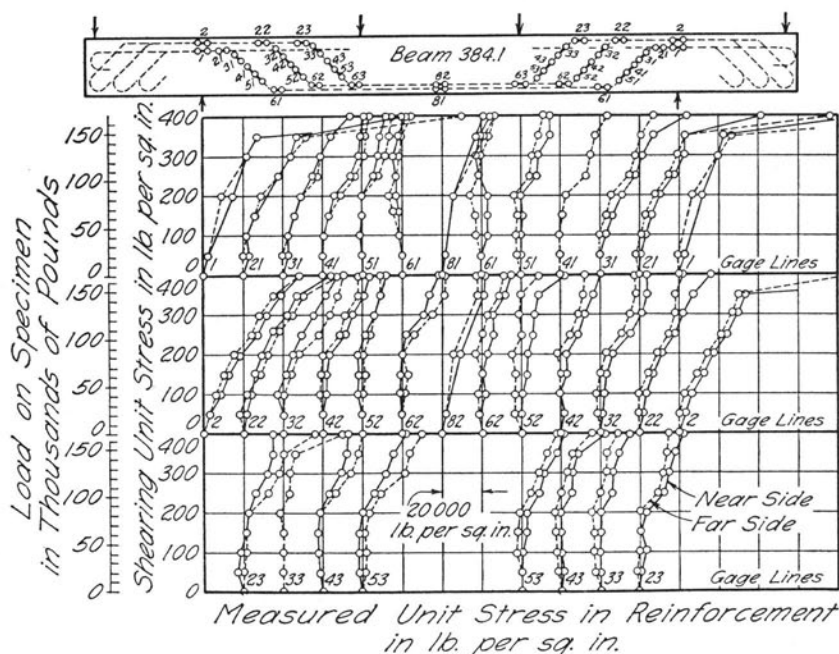 2 22 23 23 22 2
Beam 384.1
1 21 31 41 51 61 32 42 52 62 33 43 53 63 82 81 63 53 43 33 62 52 42 32 61 51 41 31 21 1
Load on Specimen
in Thousands of Pounds
Shearing Unit Stress in lb. per sq. in.
150 100 50 0
400 300 200 100 0
1 21 31 41 51 61 81 61 51 41 31 21 1 Gage Lines
150 100 50 0
400 300 200 100 0
2 22 32 42 52 62 82 62 52 42 32 22 2 Gage Lines
150 100 50 0
400 300 200 100 0
20 000
lb. per sq. in.
Near Side
Far Side
23 33 43 53 53 43 33 23 Gage Lines
Measured Unit Stress in Reinforcement
in lb. per sq. in.